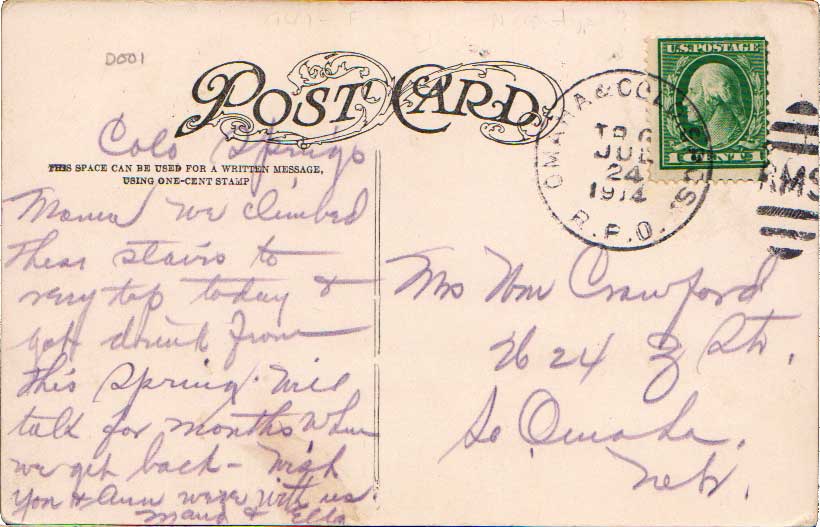 D001
POST CARD
THIS SPACE CAN BE USED FOR A WRITTEN MESSAGE,
USING ONE-CENT STAMP
Colo Springs
Mama we climbed
thear stairs to
very top today &
got drink from
this spring. Will
talk for months when
we get back - Wish
you & Ann were with us
Maud & Ella
U.S. POSTAGE
1 CENT 1
OMAHA & COL
R.P.O.
JUL
24
1914
RMS
Mrs Wm Crawford
24 Sts.
So Omaha.
Nebr.